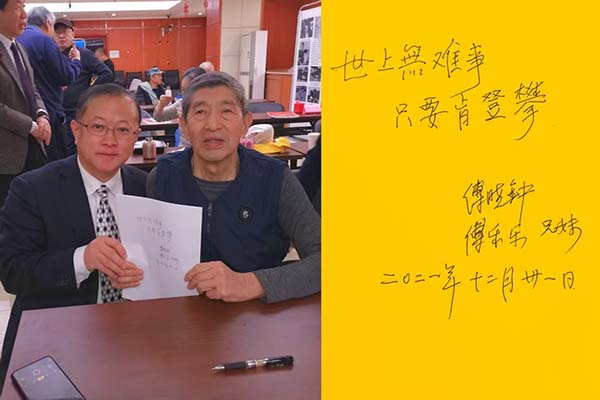 世上無难事
只要肯登攀
傅晓钟
傅乐乐 兄妹
二〇二一年十二月廿一日